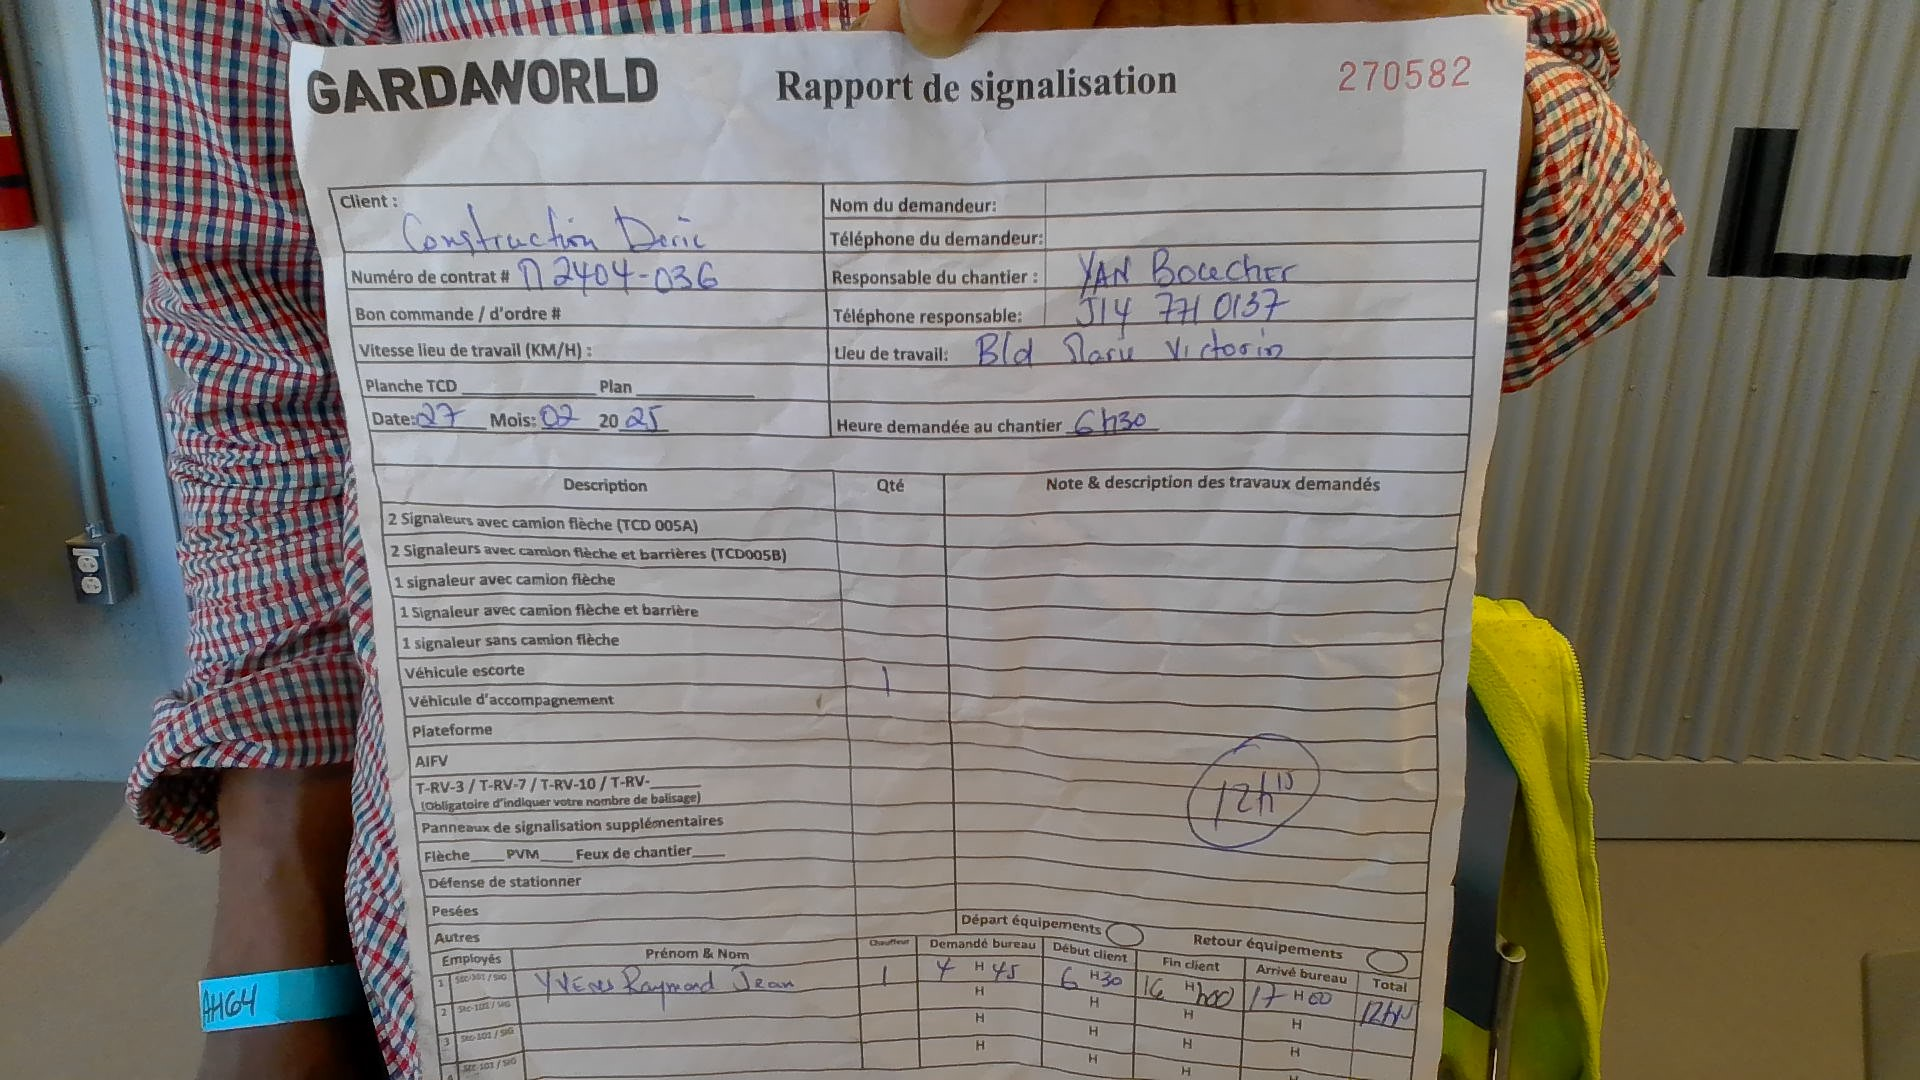 GARDAWORLD Rapport de signalisation 270582
Client : Construction Deric
Nom du demandeur:
Téléphone du demandeur:
Numéro de contrat # M2404-036
Responsable du chantier : YAN Boucher
Bon commande / d'ordre #
Téléphone responsable: 514 771 0137
Vitesse lieu de travail (KM/H) :
Lieu de travail: Bld Marie Victorin
Planche TCD Plan
Date: 27 Mois: 02 20 25
Heure demandée au chantier 6h30
Description Qté Note & description des travaux demandés
2 Signaleurs avec camion flèche (TCD 005A)
2 Signaleurs avec camion flèche et barrières (TCD005B)
1 signaleur avec camion flèche
1 Signaleur avec camion flèche et barrière
1 signaleur sans camion flèche
Véhicule escorte 1
Véhicule d'accompagnement
Plateforme
AIFV
T-RV-3 / T-RV-7 / T-RV-10 / T-RV-
(Obligatoire d'indiquer votre nombre de balisage)
12h15
Panneaux de signalisation supplémentaires
Flèche PVM Feux de chantier
Défense de stationner
Pesées
Autres
Départ équipements Retour équipements
Employés Prénom & Nom Chauffeur Demandé bureau Début client Fin client Arrivé bureau Total
1 Raymond Jean 1 4 H 45 6 H 30 16 H h00 17 H 00 12h15
2 H H H H
3 H H H H
4 H H H H
L
AH64